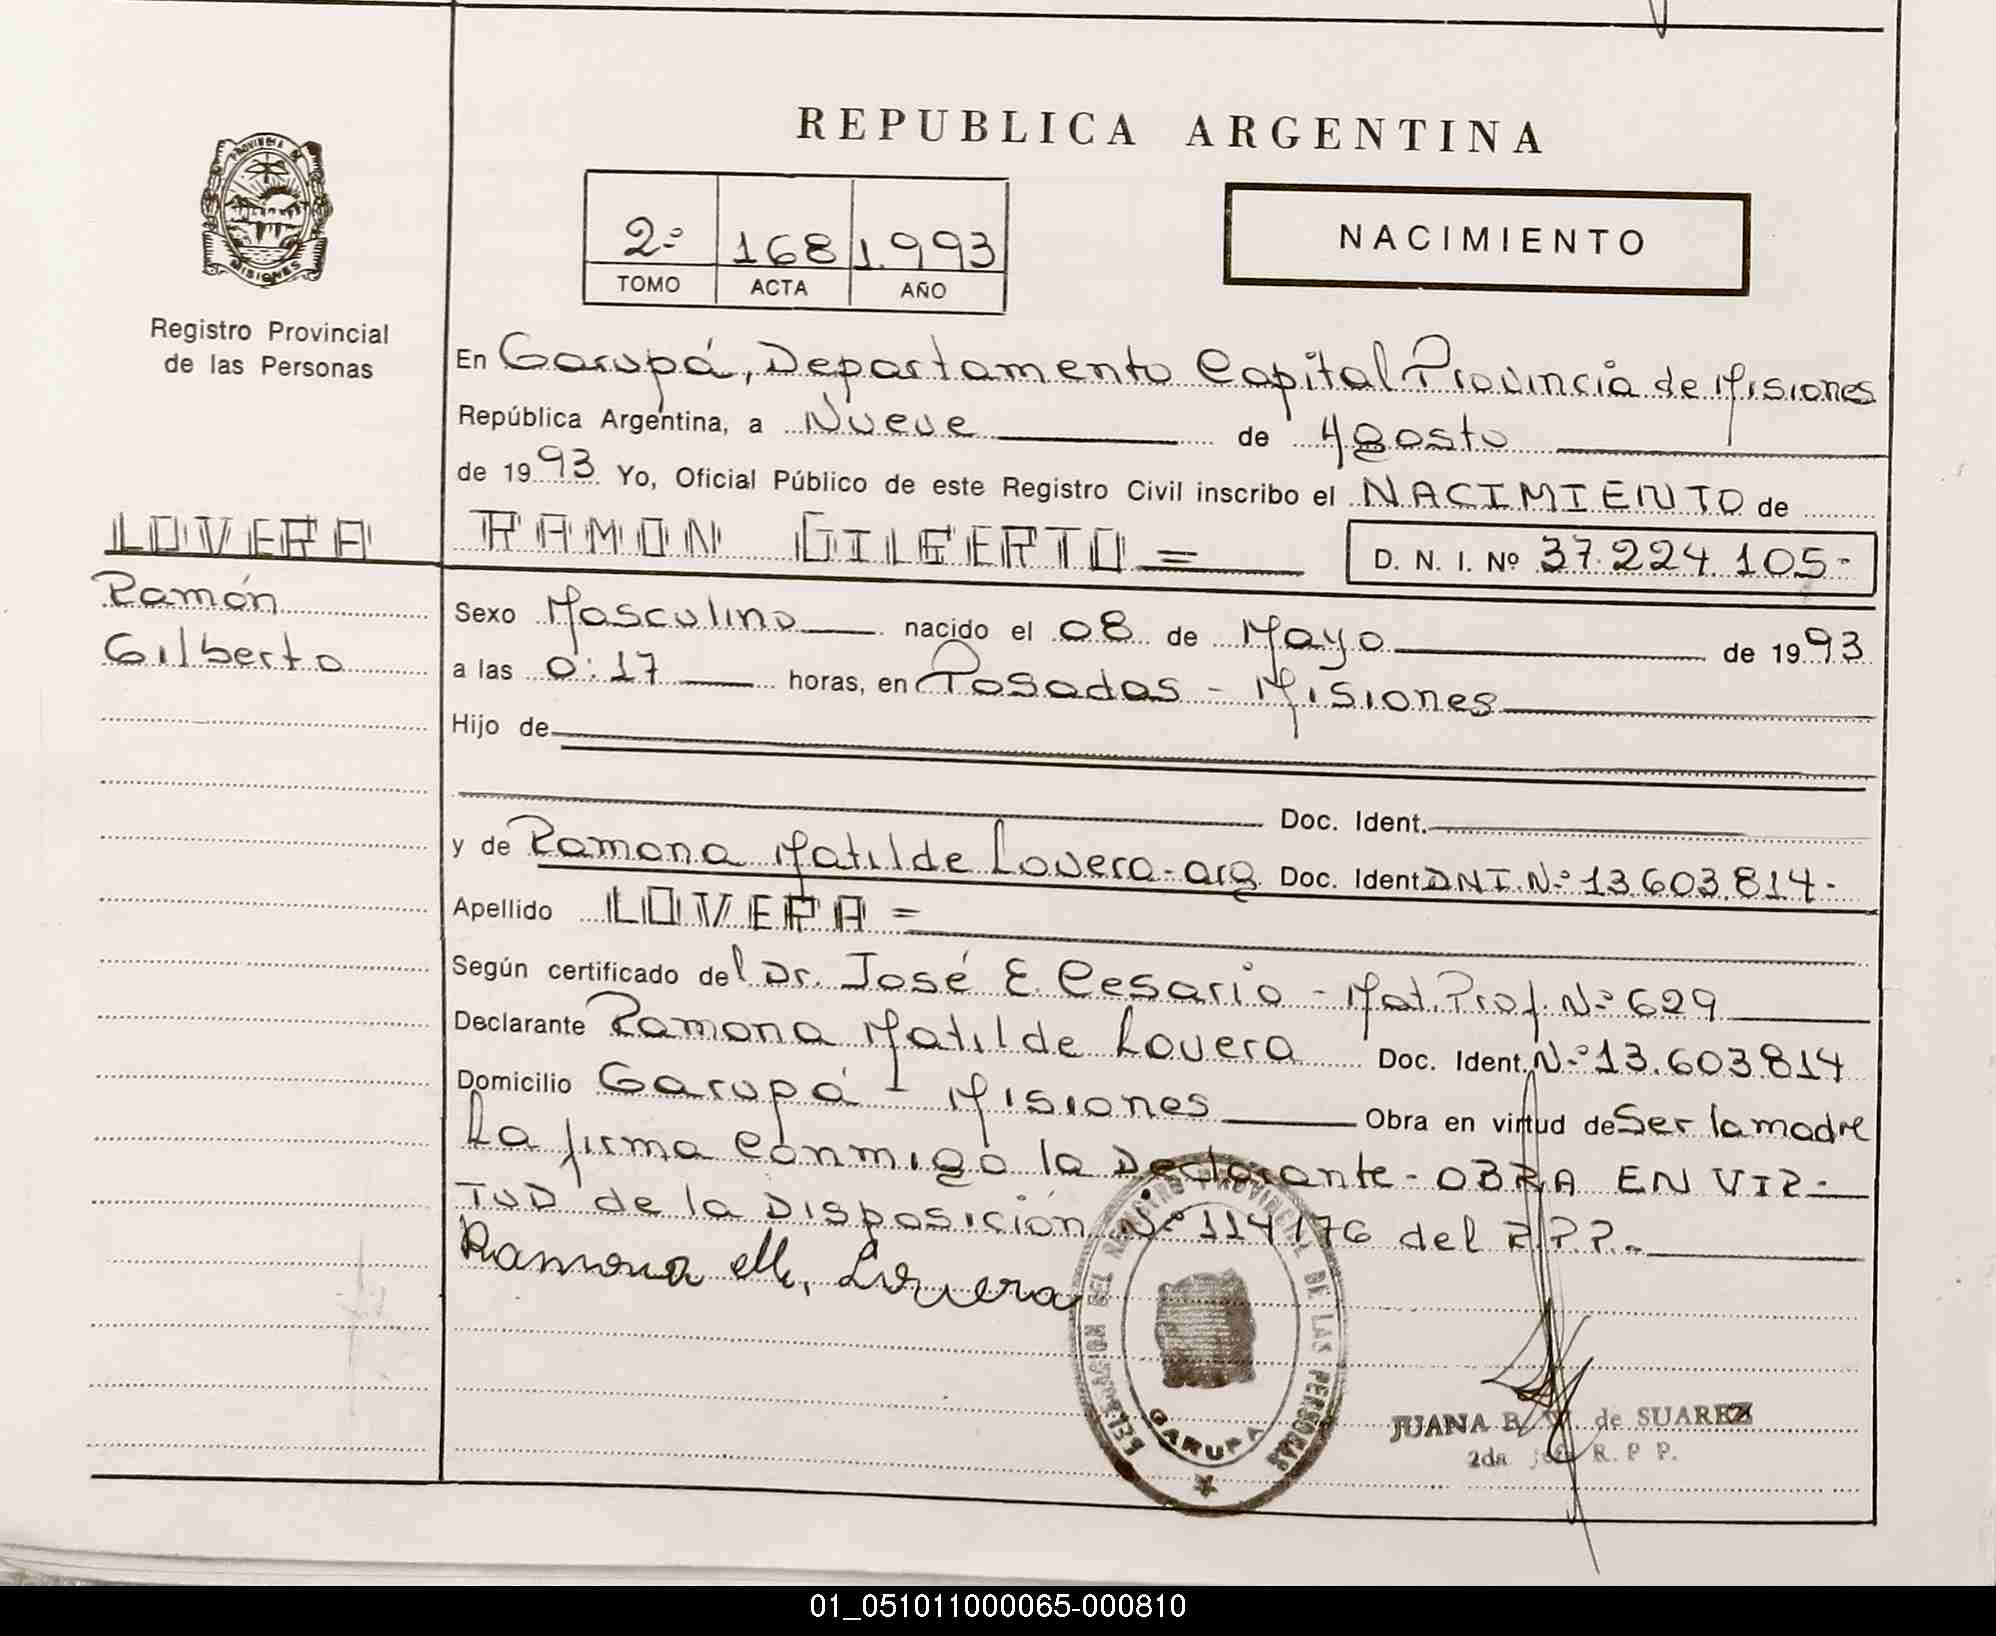 REPUBLICA ARGENTINA
PROVINCIA DE
MISIONES
Registro Provincial
de las Personas
2º 168 1.993
TOMO ACTA AÑO
NACIMIENTO
En Garupá, Departamento Capital Provincia de Misiones
República Argentina, a Nueve de Agosto
de 1993 Yo, Oficial Público de este Registro Civil inscribo el NACIMIENTO de
LOVERA RAMON GILBERTO = D. N. I. Nº 37.224.105-
Ramón
Gilberto
Sexo Masculino nacido el 08 de Mayo de 1993
a las 0:17 horas, en Posadas - Misiones
Hijo de
Doc. Ident.
y de Ramona Matilde Lovera-arg. Doc. Ident. DNI.Nº 13.603.814-
Apellido LOVERA =
Según certificado del Dr. José E. Cesario - Mat. Prof. Nº 629
Declarante Ramona Matilde Lovera Doc. Ident. Nº 13.603.814
Domicilio Garupá - Misiones Obra en virtud de Ser la madre
La firma conmigo la Declarante- OBRA EN VIR-
TUD de la Disposición Nº 114/76 del R.P.P.-
Ramona M. Lovera
DELEGACION DEL REGISTRO PROVINCIAL DE LAS PERSONAS
GARUPA
JUANA B. de SUAREZ
2da jefe R. P P.
01_051011000065-000810